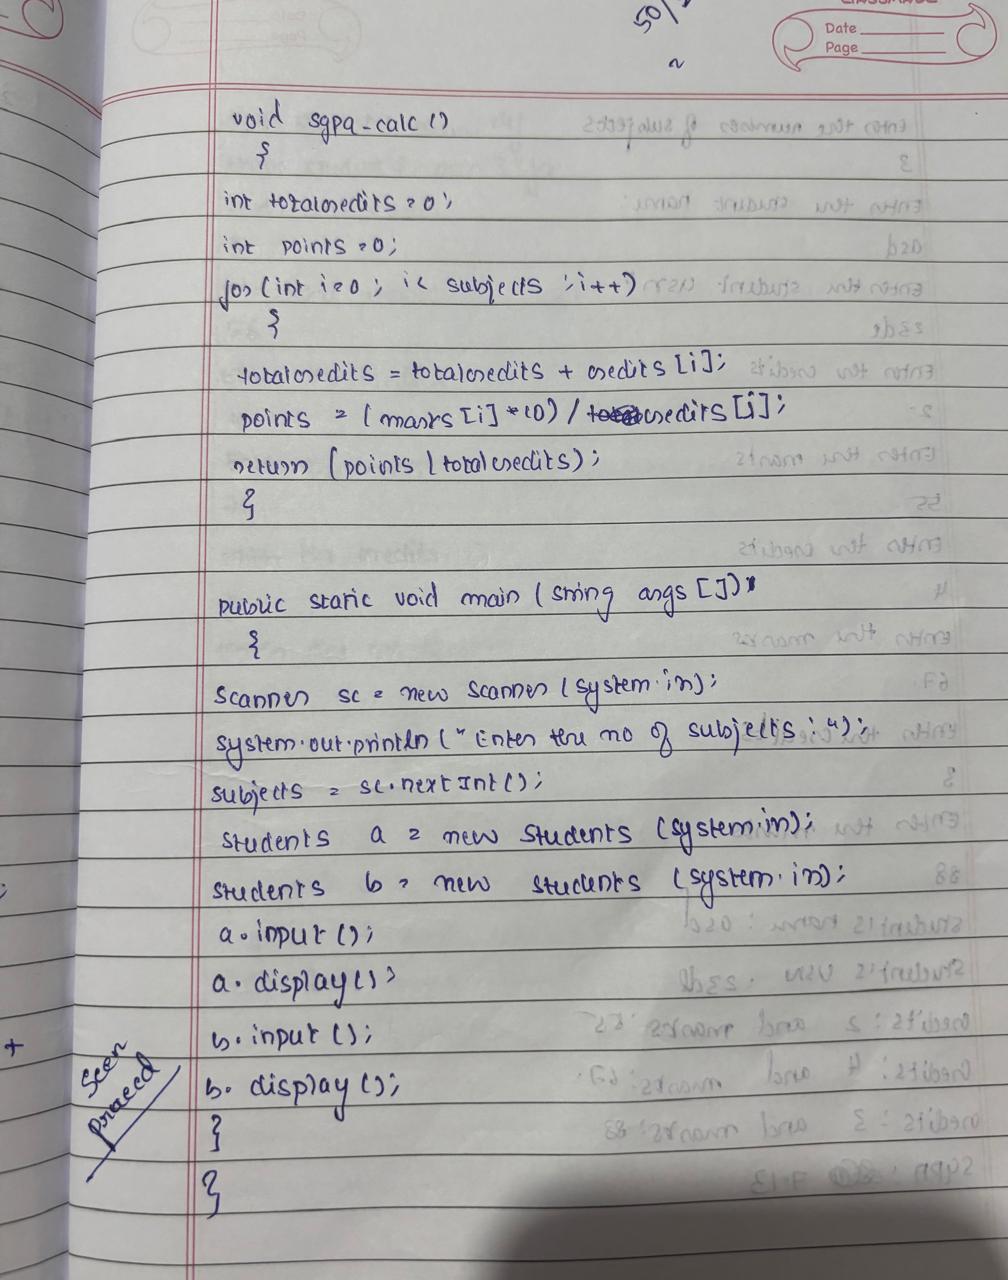 50/
Date
Page
void sgpa-calc ()
{
int totalcredits = 0;
int points = 0;
for (int i=0 ; i< subjects ; i++)
{
totalcredits = totalcredits + credits [i];
points = (marks [i] *10) / credits [i];
return (points / totalcredits);
}
public static void main (string args [])
{
Scanner sc = new Scanner (system.in);
system.out.println ("Enter the no of subjects : ");
subjects = sc.next Int ();
students a = new students (system.in);
students b = new students (system.in);
a.input ();
a. display();
b. input ();
b. display ();
}
}
Seen
+